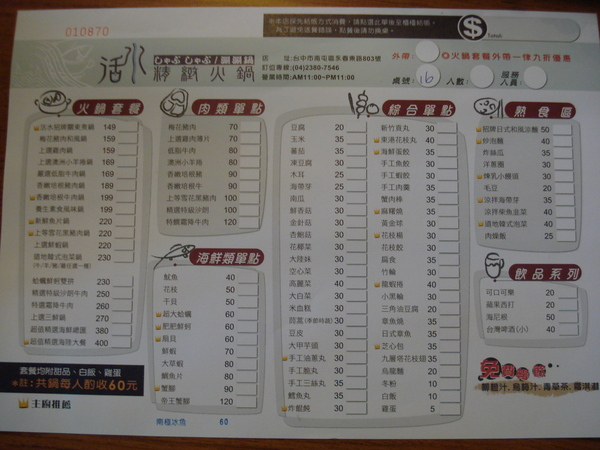 010870
＊本店採先結帳方式消費，請點選此單後至櫃檯結帳。
為了避免送餐錯誤，點餐後請勿換桌。
$
Total:
活水
しゃぶ しゃぶ / 涮涮鍋
棒嫩火鍋
店　址:台中市南屯區永春東路803號
訂位專線:(04)2380-7546
營業時間:AM11:00~PM11:00
外帶
◎火鍋套餐外帶一律九折優惠
桌號 16 人數 服務人員
火鍋套餐
活水招牌關東煮鍋 149
梅花豬肉和風鍋 159
上選雞肉鍋 159
上選澳洲小羊捲鍋 169
嚴選低脂牛肉鍋 169
香嫩培根豬肉鍋 189
香嫩培根牛肉鍋 199
養生素食風味鍋 199
新鮮魚片鍋 220
上等雪花黑豬肉鍋 220
上選鮮蝦鍋 220
道地韓式泡菜鍋 230
蛤蠣鮮蚵雙拼 230
精選特級沙朗牛肉 250
特選霜降牛肉 260
上選三鮮鍋 270
超值精選海鮮總匯 380
超值精選海陸大餐 400
套餐均附甜品、白飯、雞蛋
＊註：共鍋每人酌收60元
主廚推薦
肉類單點
梅花豬肉 70
上選雞肉薄片 70
低脂牛肉 80
澳洲小羊捲 80
香嫩培根豬 90
香嫩培根牛 90
上等雪花黑豬肉 100
精選特級沙朗 100
特選霜降牛肉 120
海鮮類單點
魷魚 40
花枝 50
干貝 50
超大蛤蠣 60
肥肥鮮蚵 60
扇貝 60
鮮蝦 70
大草蝦 80
鯛魚片 80
蟹腳 90
帝王蟹腳 120
南極冰魚 60
綜合單點
豆腐 20
玉米 35
蕃茄 30
凍豆腐 30
木耳 25
海帶芽 25
南瓜 30
鮮香菇 30
金針菇 30
杏鮑菇 30
花椰菜 30
大陸妹 30
空心菜 30
高麗菜 40
大白菜 30
米血糕 30
茼蒿(季節時蔬) 30
豆皮 30
大甲芋頭 30
手工油蔥丸 30
手工脆丸 30
手工三絲丸 35
鱈魚丸 35
炸餛飩 30
新竹貢丸 30
東港花枝丸 40
海鮮蛋餃 35
手工魚餃 30
手工蝦餃 30
手工肉羹 35
蟹肉棒 35
麻糬燒 35
黃金球 30
花枝楊 30
花枝餃 30
扁食 35
竹輪 30
龍蝦捲 40
小黑輪 30
三角油豆腐 20
章魚燒 35
日式章魚 35
芝心包 35
九層塔花枝翅 35
烏龍麵 20
冬粉 10
白飯 10
雞蛋 5
熟食區
招牌日式和風涼麵 50
炒泡麵 40
炸絲瓜 35
洋蔥圈 30
煉乳小饅頭 30
毛豆 20
涼拌海帶芽 35
涼拌柴魚韭菜 40
道地韓式泡菜 40
肉燥飯 25
飲品系列
可口可樂 20
蘋果西打 20
海尼根 50
台灣啤酒(小) 40